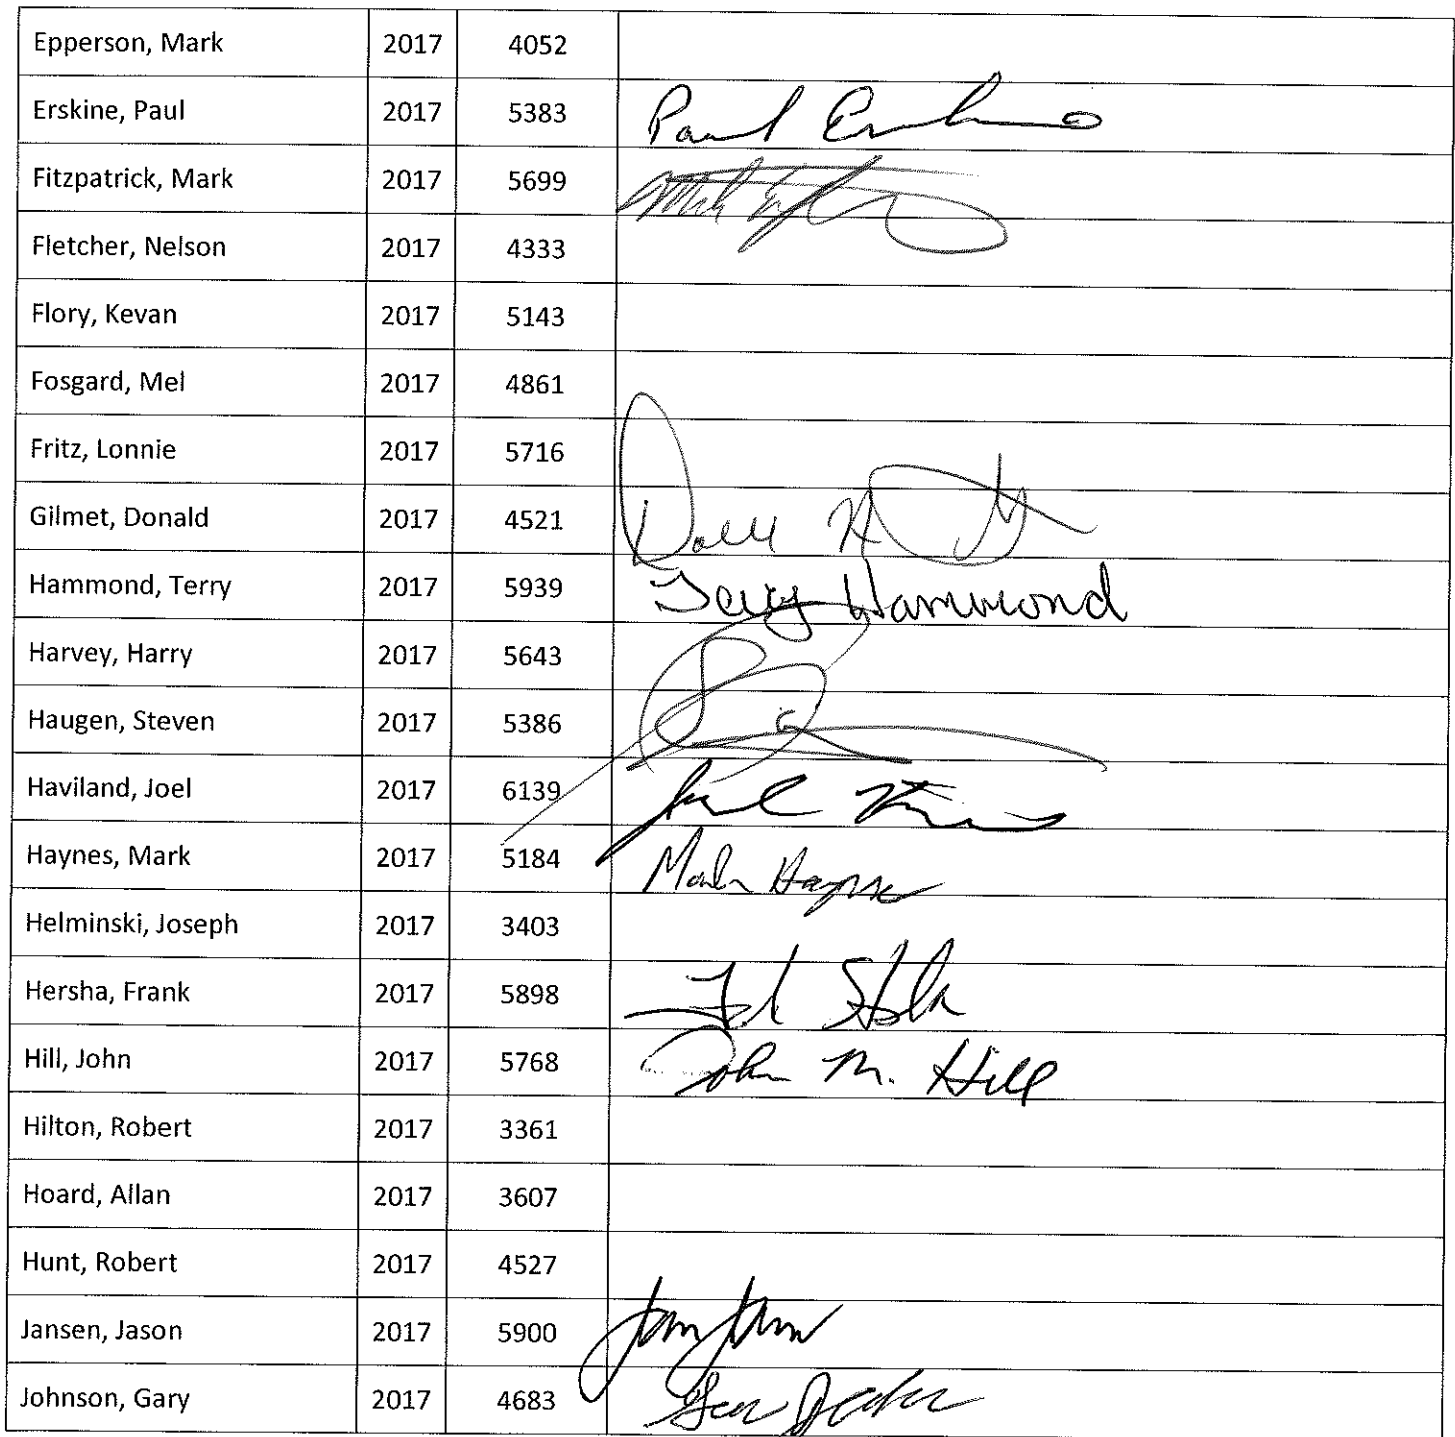 Epperson, Mark 2017 4052
Erskine, Paul 2017 5383 Paul Erskine
Fitzpatrick, Mark 2017 5699
Fletcher, Nelson 2017 4333
Flory, Kevan 2017 5143
Fosgard, Mel 2017 4861
Fritz, Lonnie 2017 5716
Gilmet, Donald 2017 4521
Hammond, Terry 2017 5939 Terry Hammond
Harvey, Harry 2017 5643
Haugen, Steven 2017 5386
Haviland, Joel 2017 6139
Haynes, Mark 2017 5184 Mark Haynes
Helminski, Joseph 2017 3403
Hersha, Frank 2017 5898
Hill, John 2017 5768 John M. Hill
Hilton, Robert 2017 3361
Hoard, Allan 2017 3607
Hunt, Robert 2017 4527
Jansen, Jason 2017 5900
Johnson, Gary 2017 4683